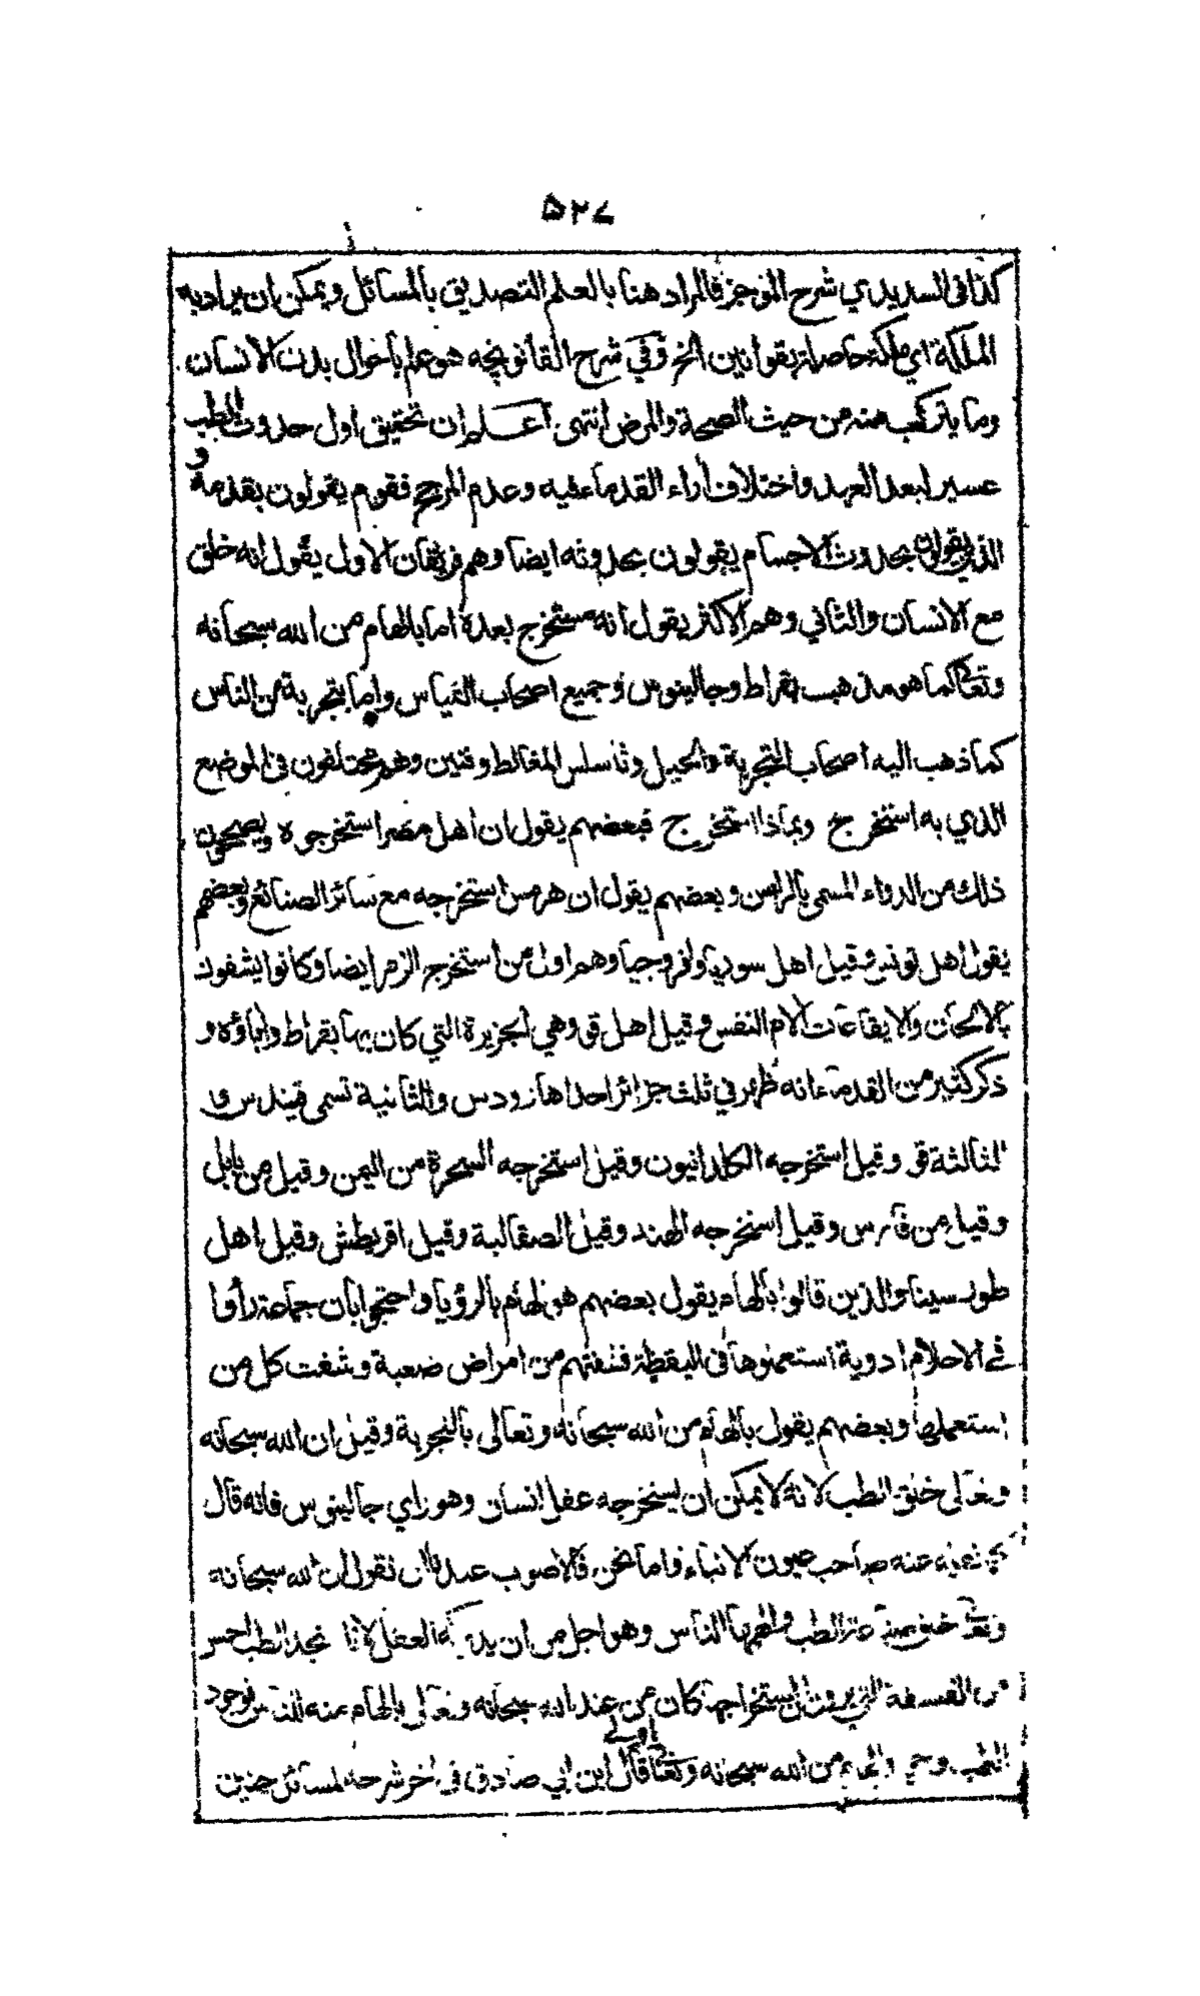 ۵۲۷
كذا في السديدي شرح الموجز فالمراد هنا بالعلم التصديق بالمسائل ويمكن ان يراد به
الملكة اي ملكة حاصلة بقوانين الخ وفي شرح القانونچه هو علم باحوال بدن الانسان
وما يتركب منه من حيث الصحة والمرض انتهى اعلم ان تحقيق اول حدوث الطب
عسير لبعد العهد واختلاف آراء القدماء عليه وعدم المرجح فقوم يقولون بقدمه و
الذين يقولون بحدوث الاجسام يقولون بحدوثه ايضا وهم فريقان الاول يقول انه خلق
مع الانسان والثاني وهم الاكثر يقول انه مستخرج بعده اما بالهام من الله سبحانه
وتعالى كما هو مذهب بقراط وجالينوس وجميع اصحاب القياس واما بتجربة من الناس
كما ذهب اليه اصحاب التجربة والحيل وثاسلس المغالط وفنين وهم مختلفون في الموضع
الذي به استخرج وبماذا استخرج فبعضهم يقول ان اهل مصر استخرجوه ويصححون
ذلك من الدواء المسمى بالراسن وبعضهم يقول ان هرمس استخرجه مع سائر الصنائع وبعضهم
يقول اهل تونس وقيل اهل سوريا وافروجيا وهم اول من استخرج الزمر ايضا وكانوا يشفون
بالالحان والايقاعات آلام النفس وقيل اهل قو وهي الجزيرة التي كان بها بقراط وآباؤه و
ذكر كثير من القدماء انه ظهر في ثلث جزائر احداها رودس والثانية تسمى قنيدس و
الثالثة قو وقيل استخرجه الكلدانيون وقيل استخرجه السحرة من اليمن وقيل من بابل
وقيل من فارس وقيل استخرجه الهند وقيل الصقالبة وقيل اقريطش وقيل اهل
طور سينا والذين قالوا بالهام يقول بعضهم هو الهام بالرؤيا واحتجوا بان جماعة رأوا
في الاحلام ادوية استعملوها في اليقظة فشفتهم من امراض صعبة وشفت كل من
استعملها وبعضهم يقول بالهام من الله سبحانه وتعالى بالتجربة وقيل ان الله سبحانه
وتعالى خلق الطب لانه لا يمكن ان يستخرجه عقل انسان وهو راي جالينوس فانه قال
كما نقله عنه صاحب عيون الانباء واما نحن فالاصوب عندنا ان نقول ان الله سبحانه
وتعالى خلق صناعة الطب والهمها الناس وهو اجل من ان يدركه العقل لانا نجد الطب احسن
من الفلسفة التي يرون ان استخراجها كان من عند الله سبحانه وتعالى بالهام منه للناس فوجود
الطب بوحي والهام من الله سبحانه وتعالى قال ابن ابي صادق في آخر شرحه لمسائل حنين